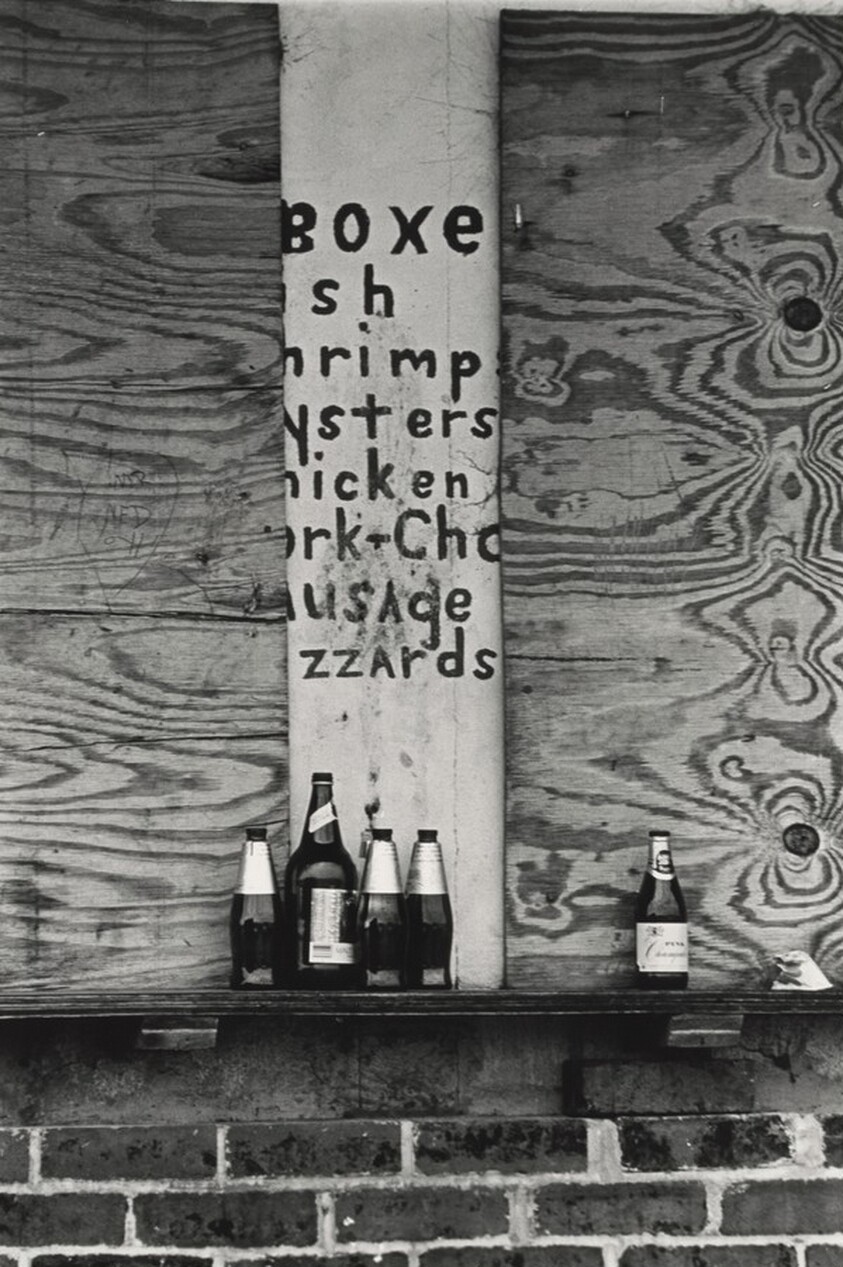 Boxe
sh
hrimp
ysters
hicken
ork-Cho
ausage
zzards
PINK